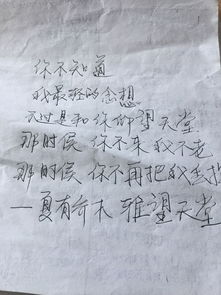 你不知道
我最轻的念想
不过是和你仰望天堂
那时候 你不来 我不老
那时候 你不再把我丢
一夏有乔木 雅望天堂